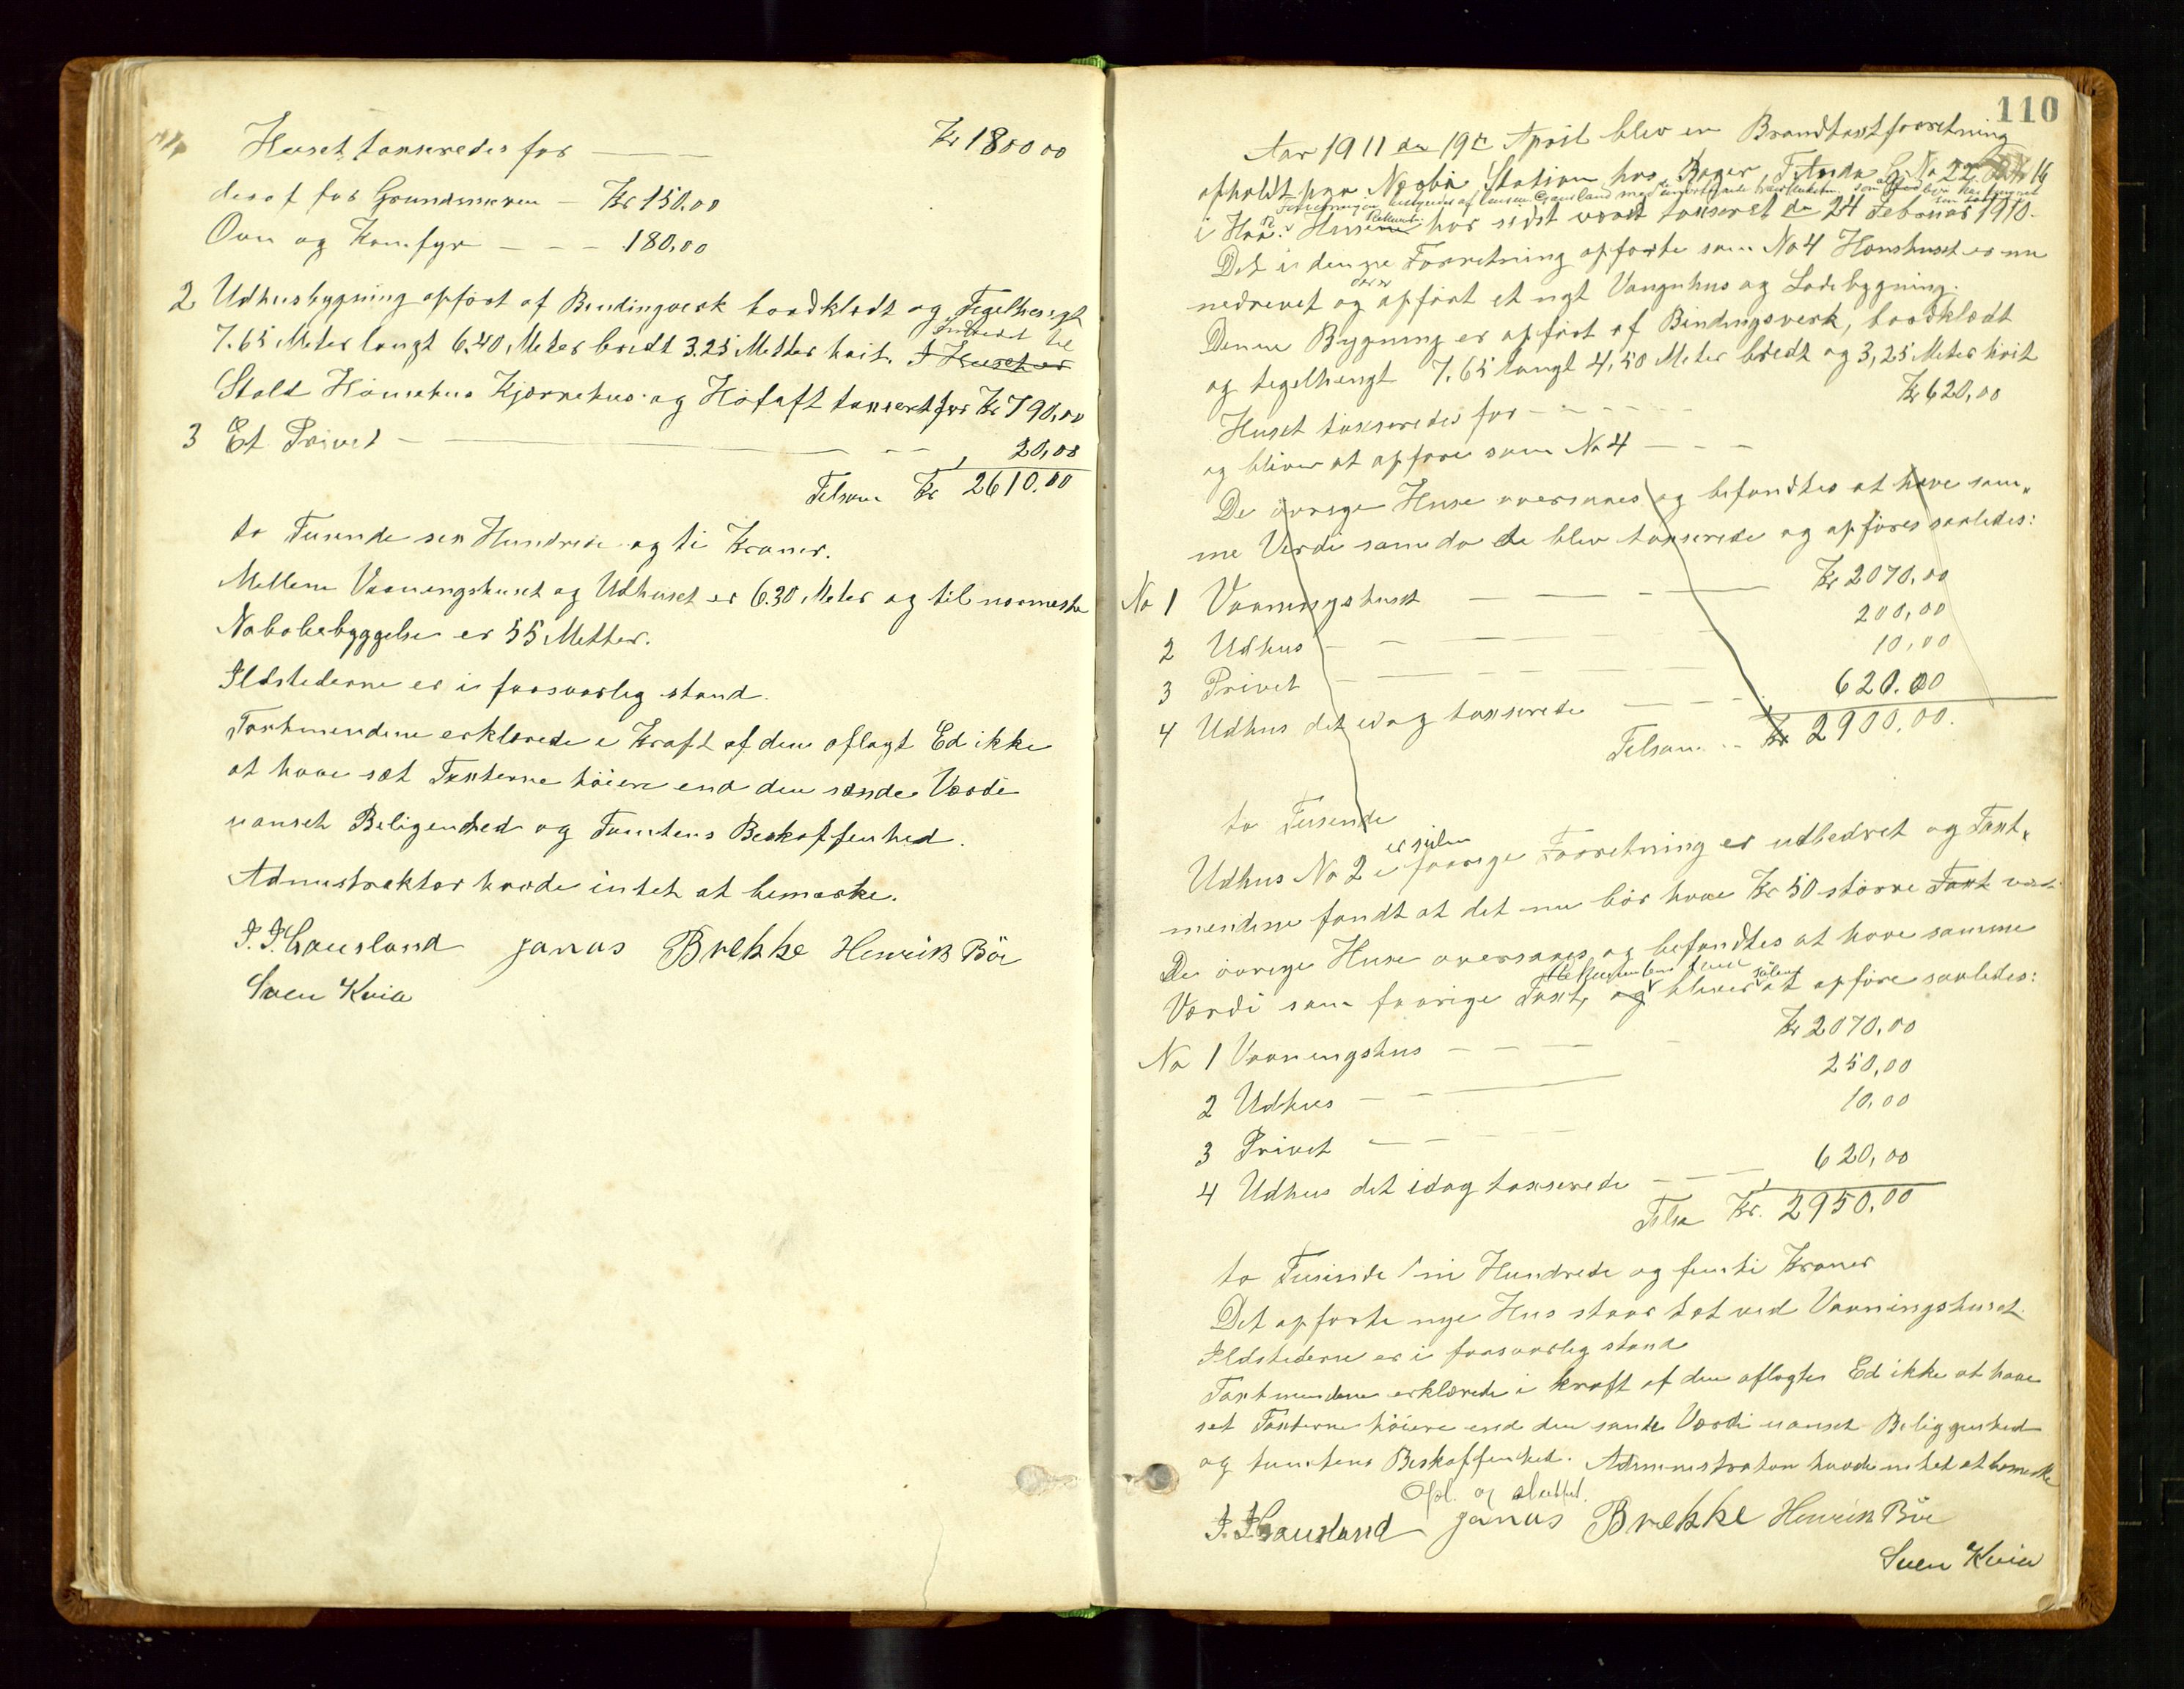 Huset taxseredes for — — Kr 1800 00
deraf for Grundmuren — Kr 150,00
Ovn og Komfyr — — — 180,00
2 Udhusbygning opført af Bindingverk bordklædt og Tegelhengt
7.65 Meter langt 6.40 Meter bredt 3.25 Metter høit. Huset er indredet til
Stald Hönsehus Kjørrehus og Höloft taxseret for Kr 790,00
3 Et Privet — — — — 20,00
Tilsam Kr 2610.00
to Tusende sex Hundrede og ti Kroner.
Mellem Vaaningshuset og Udhuset er 6.30 Meter og til nærmeste
Nabobebyggelse er 55 Metter.
Ildstederne er i forsvarlig stand.
Taxtmendene erklærede i Kraft af den aflagt Ed ikke
at have sat Taxterne höiere end den sande Værdi
uanset Beligenhed og Tomtens Beskaffenhed.
Admistraktor havde intet at bemærke.
J. J. Gausland Janas Brekke Henrik Böe
Sven Kvia
110
Aar 1911 den 19de April blev en Brandtaxtforretning
opholdt paa Nærbö Station hos Bager G. No 22 16
i Haa. Husene har sidst været taxseret den 24 Februar 1910.
Det i denne Forretning opførte som No 4 Hönshuset er nu
nedrevet og der er opført et nyt Vangnhus og Ladebygning.
Denne Bygning er opført af Bindingsverk, bordklædt
og tegelhengt 7.65 langt 4,50 Meter bredt og 3,25 Meter höit
Huset taxseredes for — — — — Kr 620,00
og bliver at opføre som No 4 — — —
De övrige Huse oversaaes og befandtes at have sam-
me Verdi som da de blev taxserede og opføres saaledes:
No 1 Vaaningshuset — — — — Kr 2070,00
2 Udhus — — — 200,00
3 Privet — — — 10,00
4 Udhus det idag taxserede — — — 620.00
Tilsam — Kr 2900,00.
to Tusende
Udhus No 2 i forrige Forretning er siden er udbedret og Taxt-
mendene fandt at det nu bör have Kr 50 større Taxt
De övrige Huse oversaaes og befandtes at have samme
Værdi som forrige Taxt, og bliver at opføre saaledes:
No 1 Vaaningshus — — — Kr 2070,00
2 Udhus — — 250,00
3 Privet — — 10,00
4 Udhus det idag taxserede — — 620,00
Tilsa Kr. 2950,00
to Tusinde ni Hundrede og femti Kroner
Det opførte nye Hus staar tæt ved Vaaningshuset.
Ildstederne er i forsvarlig stand
Taxtmendene erklærede i kraft af den aflagte Ed ikke at have
set Taxterne höiere end den sande Værdi uanset Beliggenhed
og tomtens Beskaffenhed. Administraton havde intet at bemerke
Opl. og sluttet.
J. J. Gausland Janas Brekke Henrik Böe
Sven Kvia